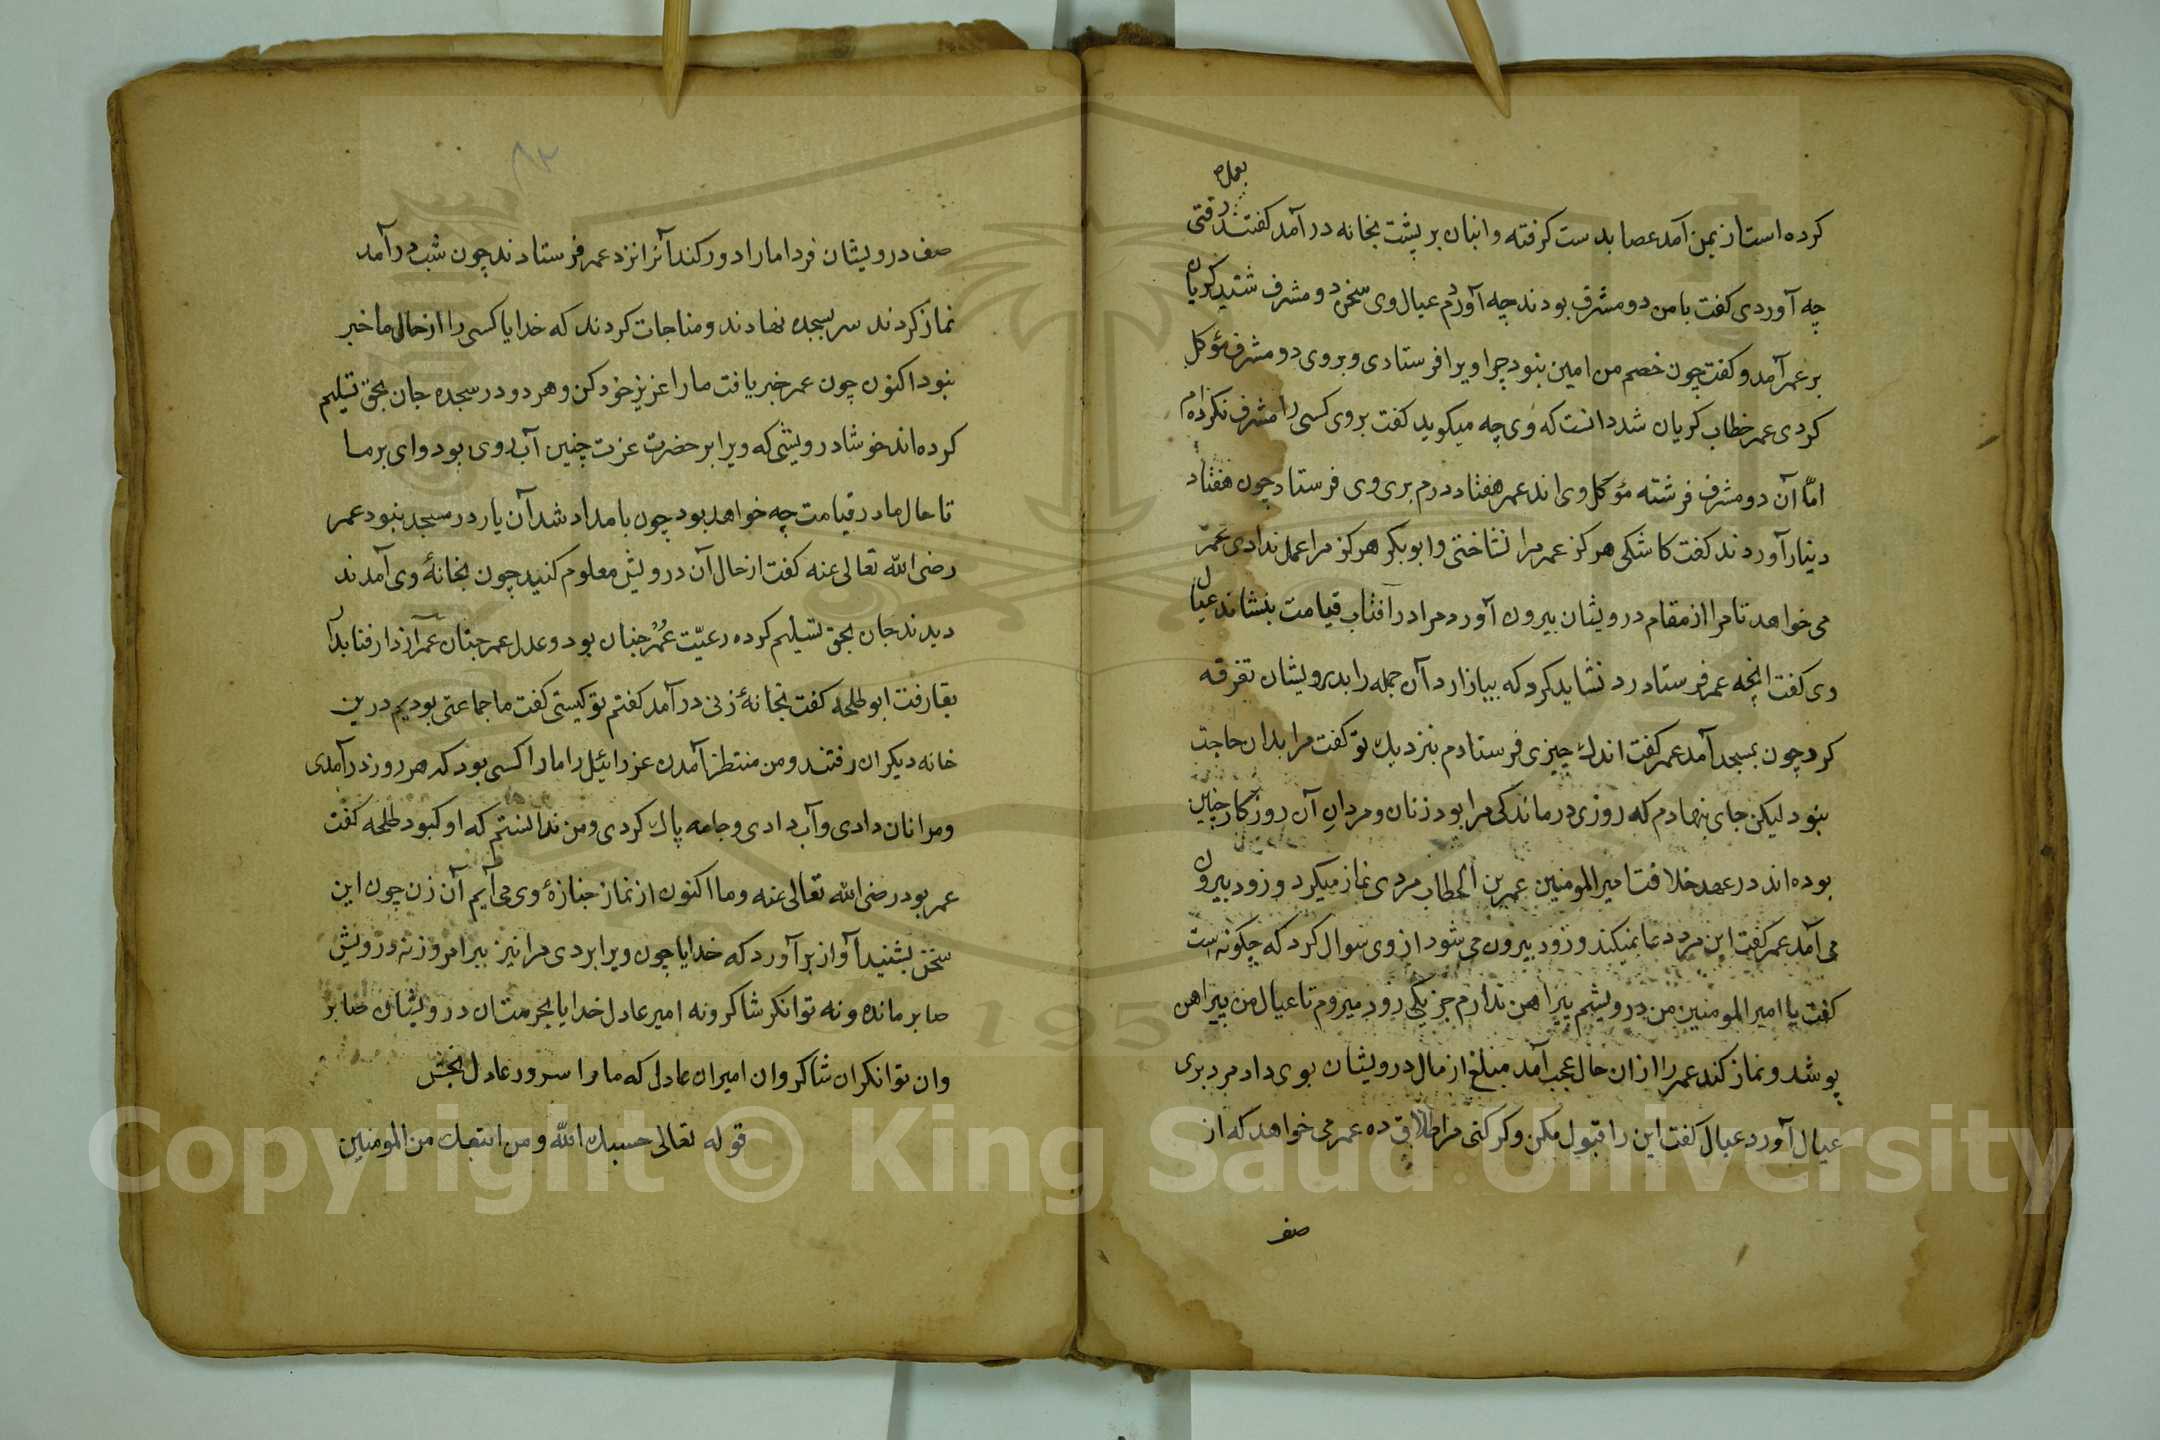 بعمل
کرده است از یمن آمد عصا بدست کرفته و انبان بر پشت بخانه در آمد کفتند رفتی
چه آوردی کفت با من دو مشرف بودند چه آوردم عیال وی سخن دو مشرف شنید کریان
بر عمر آمد و کفت چون خصم من امین نبود چرا ویرا فرستادی و بروی دو مشرف مؤکل
کردی عمر خطاب کریان شد دانست که وی چه میکوید کفت بروی کسی را مشرف نکرده ام
امّا آن دو مشرف فرشته مؤکل وی اند عمر هفتاد درم بری وی فرستاد چون هفتاد
دینار آوردند کفت کاشکی هرکز عمر مرا نشاختی و ابوبکر هرکز مرا عمل ندادی عمر
می خواهد تا مرا از مقام درویشان بیرون آورد مرا در آفتاب قیامت بنشاند عیال
وی کفت انچه عمر فرستاد رد نشاید کرد که بیازارد آن جمله را بدرویشان تفرقه
کرد چون بمسجد آمد عمر کفت اندك چیزی فرستادم بنزدیك تو کفت مرا بدان حاجت
نبود لیکن جای نهادم که روزی درماندکی مرا بود زنان و مردان آن روزکار چنین
بوده اند در عهد خلافت امیر المومنین عمر بن الخطاب مردی نماز میکرد و زود بیرون
می آمد عمر کفت این مرد دعا نمیکند و زود بیرون می شود از وی سوال کرد که چکونه است
کفت یا امیر المومنین من درویشم پیراهن ندارم جز یکی زود میروم تا عیال من پیراهن
پوشد و نماز کند عمر را ازان حال عجب آمد مبلغ از مال درویشان بوی داد مرد بری
عیال آورد عیال کفت این را قبول مکن و کر کنی مرا طلاق ده عمر می خواهد که از
صف
۸۲
صف درویشان فردا ما را دور کند آنرا نزد عمر فرستادند چون شب در آمد
نماز کردند سر بسجده نهادند و مناجات کردند که خدایا کسی را از حال ما خبر
نبود اکنون چون عمر خبر یافت ما را عزیز خود کن و هر دو در سجده جان بحق تسلیم
کرده اند خوشا درویشی که ویرا بر حضرت عزت چنین آب روی بود وای بر ما
تا حال ما در قیامت چه خواهد بود چون بامداد شد آن یار در مسجد نبود عمر
رضی الله تعالی عنه کفت از حال آن درویش معلوم کنید چون بخانهٔ وی آمدند
دیدند جان بحق تسلیم کرده رعیّت عُمَر چنان بود و عدل عمر چنان عمر از دار فنا بدار
بقا رفت ابو طلحه کفت بخانهٔ زنی در آمد کفتم تو کیستی کفت ما جماعتی بودیم درین
خانه دیکران رفتند و من منتظر آمدن عزرائیل را ما را کسی بود که هر روز در آمدی
و مرا نان دادی و آب دادی و جامه پاك کردی و من ندانستم که او که بود طلحه کفت
عمر بود رضی الله تعالی عنه و ما اکنون از نماز جنازهٔ وی می آیم آن زن چون این
سخن بشنید آواز بر آورد که خدایا چون ویرا بردی مرا نیز ببر امروز نه درویش
صابر مانده و نه توانکر شاکر و نه امیر عادل خدایا بحرمت آن درویشان صابر
وان توانکران شاکر وان امیران عادل که ما را سرور عادل بخش
قوله تعالی حسبك الله ومن اتبعك من المومنین
Copyright © King Saud University
195